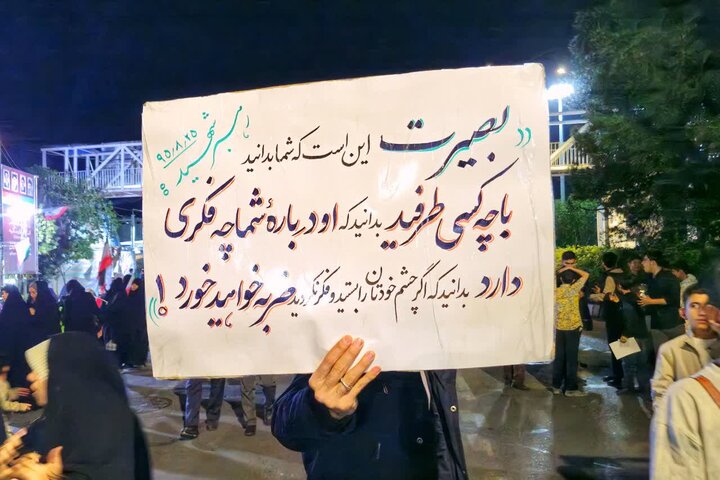 رهبر شهید:
۹۵/۸/۲۵
«بصیرت این است که شما بدانید
با چه کسی طرفید بدانید که او دربارهٔ شما چه فکری
دارد بدانید که اگر چشم خودتان را بستید و فکر نکردید ضربه خواهید خورد!»